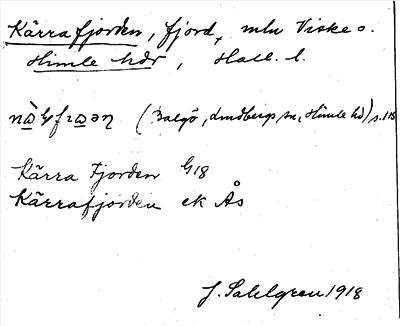 Kärrafjorden, fjord, mln Viske o.
Himle hdr, Hall. l.
(Balgö, Lindbergs sn, Himle hd) s. 118
Kärra Fjorden G18
Kärrafjorden ek Ås
J. Sahlgren 1918